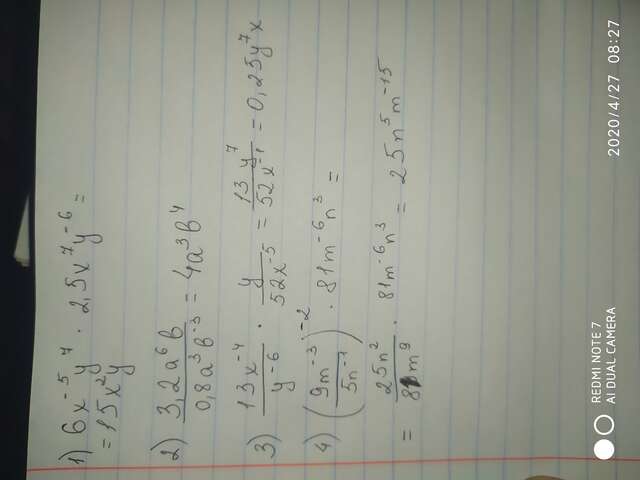 1) 6x⁻⁵y⁷ · 2,5x⁷y⁻⁶ =
= 15x²y
2) 3,2a⁶b / 0,8a³b⁻³ = 4a³b⁴
3) 13x⁻⁴ / y⁻⁶ · y / 52x⁻⁵ = 13y⁷ / 52x⁻¹ = 0,25y⁷x
4) (9m⁻³ / 5n⁻¹)⁻² · 81m⁻⁶n³ =
= 25n² / 81m⁹ · 81m⁻⁶n³ = 25n⁵m⁻¹⁵
REDMI NOTE 7
AI DUAL CAMERA
2020/4/27 08:27